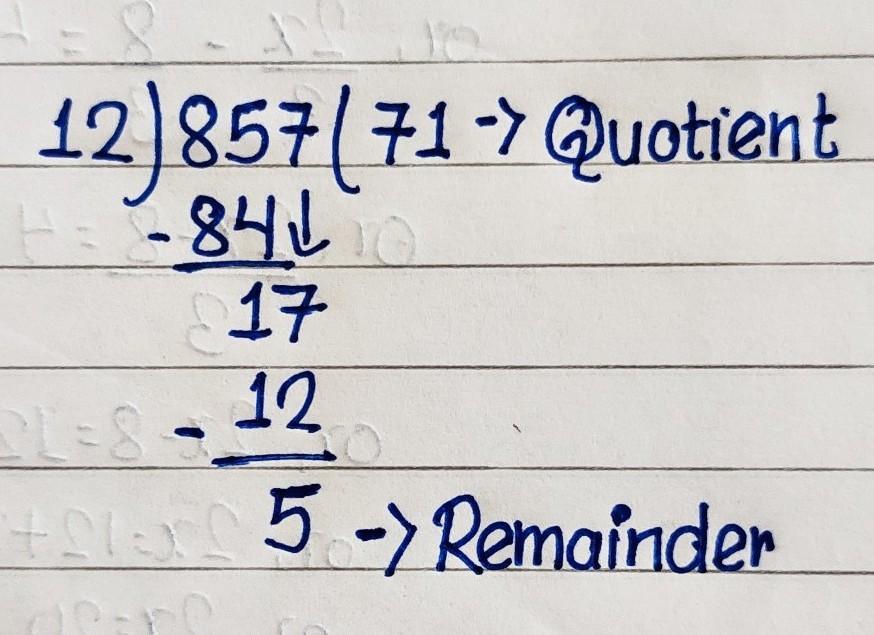 12)857(71 -> Quotient
-84↓
17
- 12
5 -> Remainder